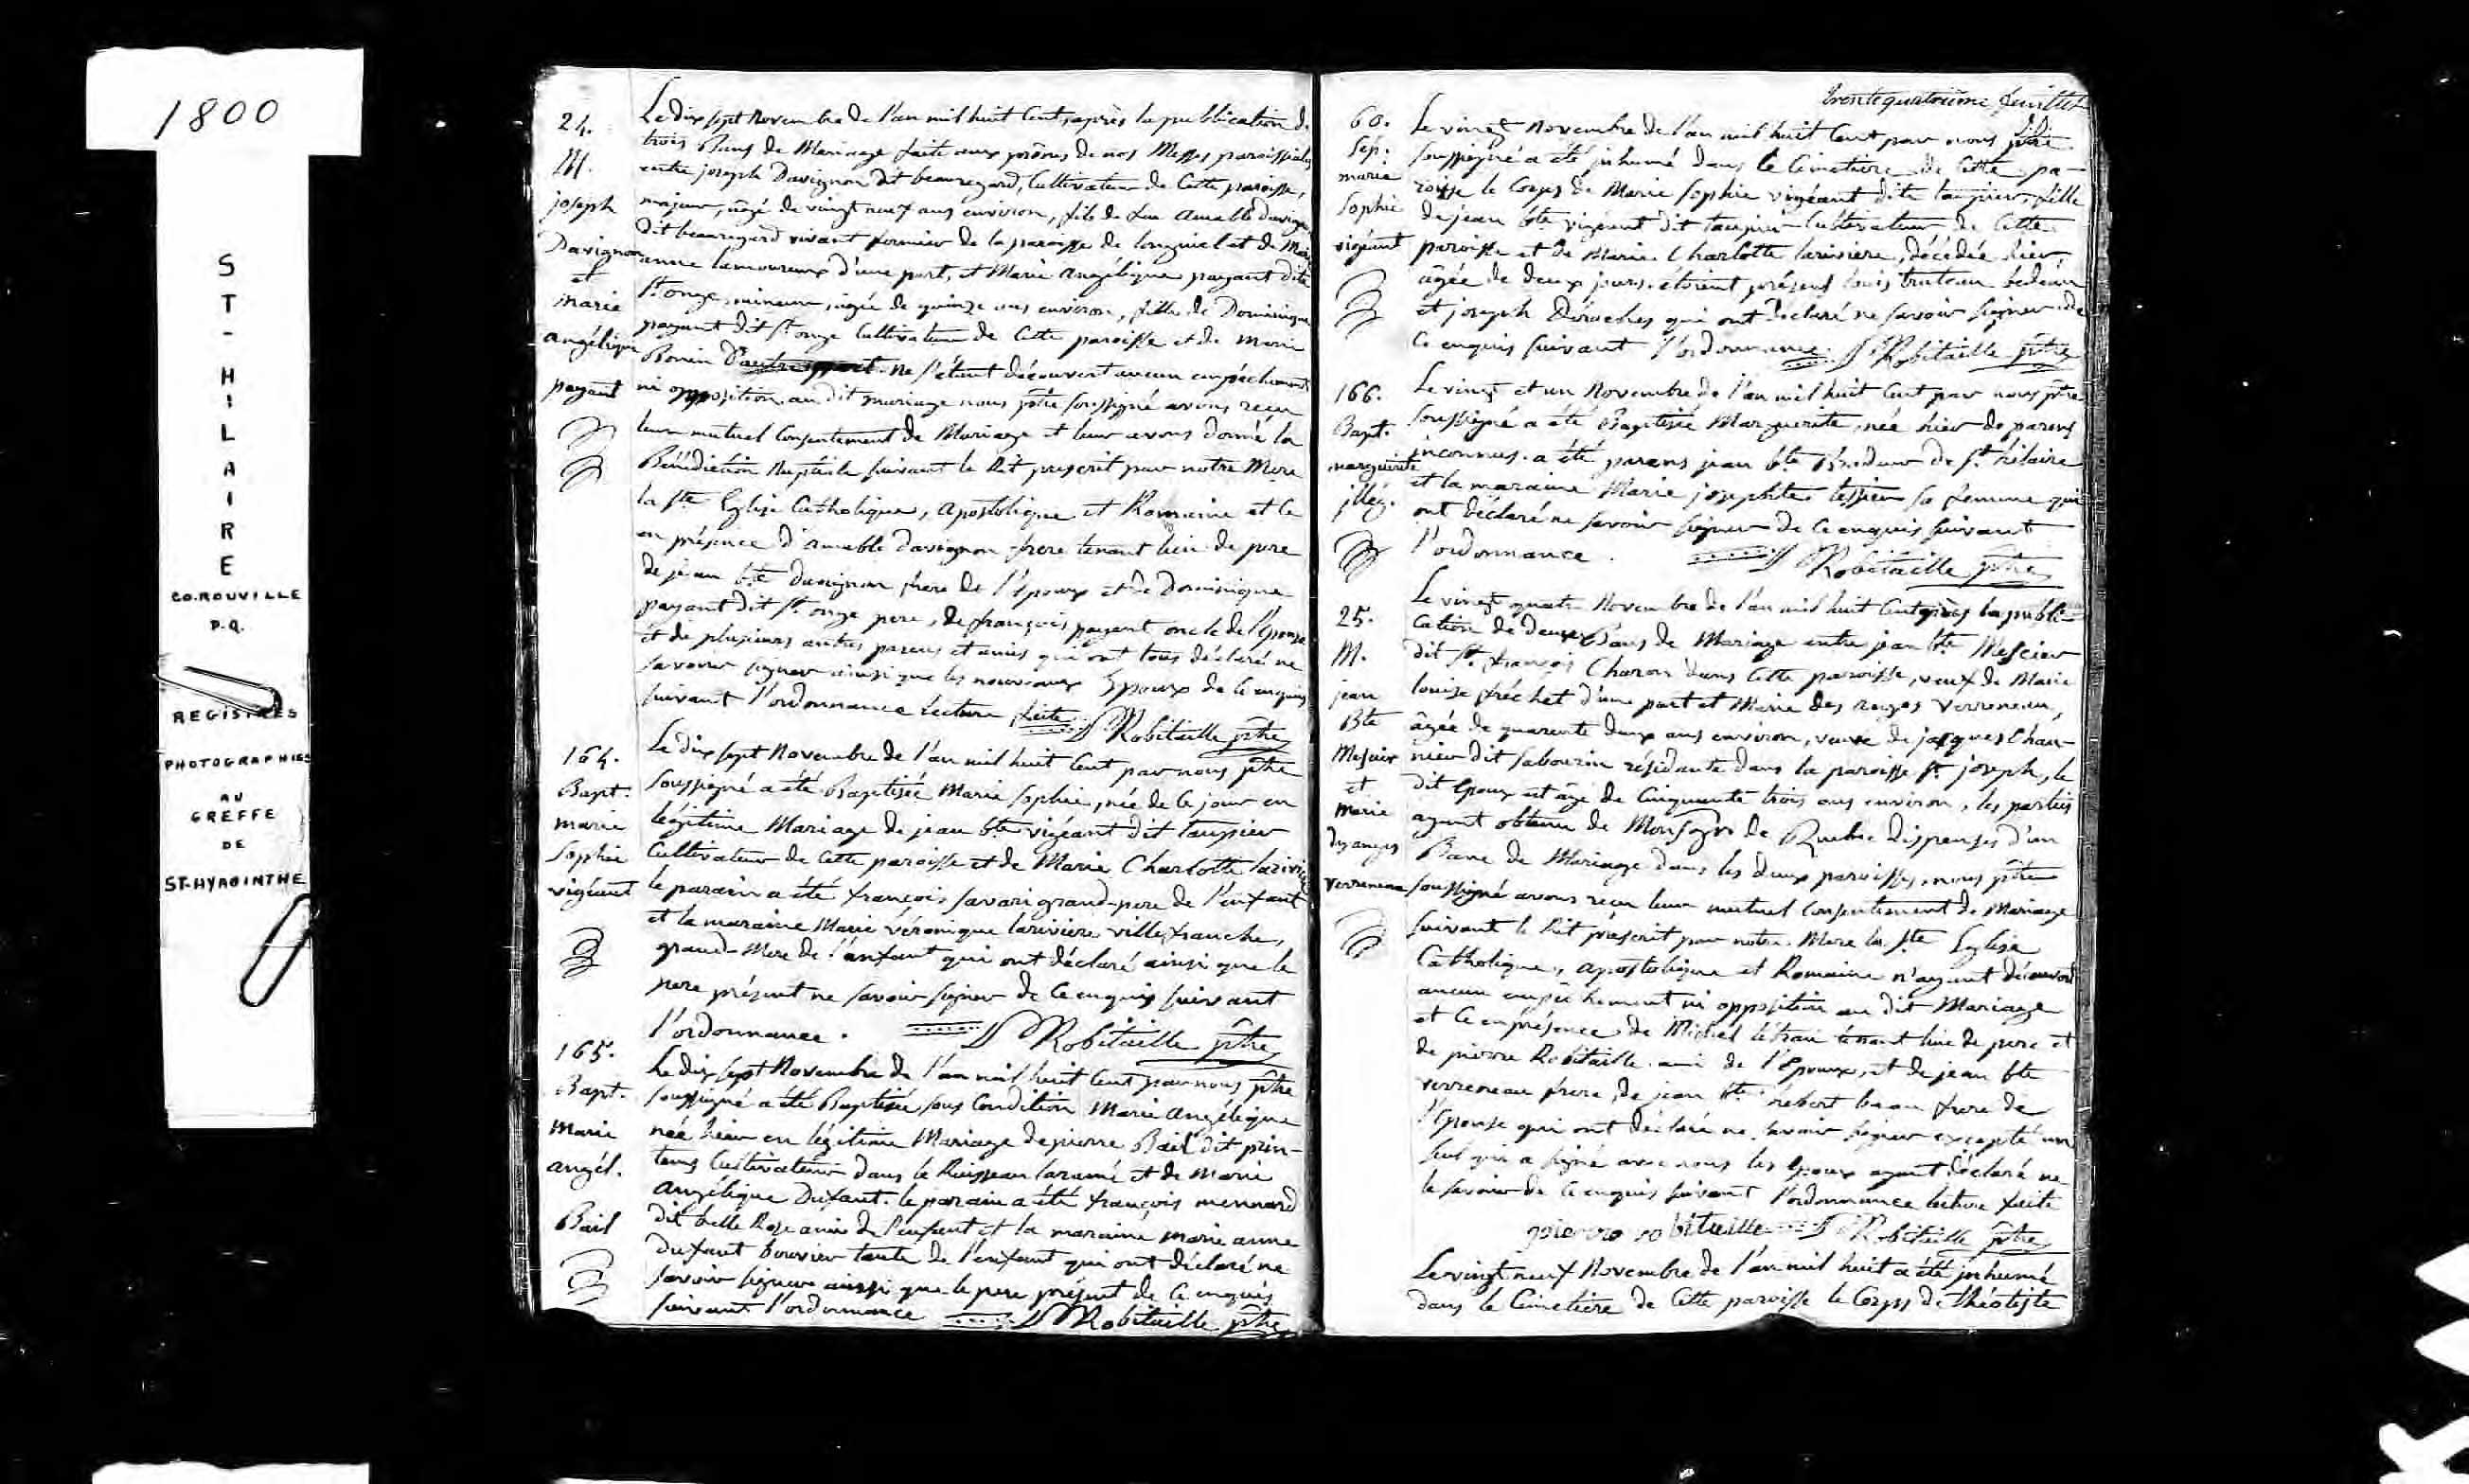 1800
S
T
-
H
I
L
A
I
R
E
CO. ROUVILLE
P.Q.
REGISTRES
PHOTOGRAPHIES
AU
GREFFE
DE
ST-HYACINTHE
24.
M.
joseph
Davignon
et
marie
angélique
payant
Le dix sept Novembre de l'an mil huit Cent, après la publication de
trois Bans de Mariage faite aux prônes de nos Messes paroissiales
entre joseph Davignon dit beauregard, Cultivateur de Cette paroisse,
majeur, âgé de vingt neuf ans environ, fils de feu amable davignon
dit beauregard vivant fermier de la paroisse de longueil et de Marie
anne lamoureux d'une part, et Marie angélique payant dite
St onge, mineure, âgée de quinze ans environ, fille de Dominique
payant dit St onge Cultivateur de Cette paroisse et de Marie
Bonin d'autre part. ne s'étant découvert aucun empéchement
ni opposition au dit mariage nous ptre soussigné avons reçu
leur mutuel Consentement de Mariage et leur avons donné la
Bénédiction Nuptiale suivant le Rit prescrit par notre Mere
la Ste Eglise Catholique, apostolique et Romaine et Ce
en présence d'amable davignon frere tenant lieu de pere
de jean bte davignon frere de l'Epoux et de Dominique
payant dit St onge pere, de françois payant oncle de l'Epouse
et de plusieurs autres parens et amis qui ont tous déclaré ne
savoir signer ainsi que les nouveaux Epoux de Ce enquis
suivant l'ordonnance lecture faite Robitaille ptre
164.
Bapt.
marie
Sophie
vigéant
Le dix sept Novembre de l'an mil huit Cent par nous ptre
soussigné a été Baptisée Marie Sophie, née de Ce jour en
légitime Mariage de jean bte vigéant dit taupier
Cultivateur de Cette paroisse et de Marie Charlotte larivie
le parain a été françois savari grand-pere de l'enfant
et la maraine Marie véronique larivière villefranche,
grand-Mere de l'enfant qui ont déclaré ainsi que le
pere présent ne savoir signer de Ce enquis suivant
l'ordonnance. Robitaille ptre
165.
Bapt.
Marie
angél.
Bail
Le dix sept Novembre de l'an mil huit Cent par nous ptre
soussigné a été Baptisée sous Condition Marie angélique
née hier en légitime Mariage de pierre Bail dit prin-
tems Cultivateur dans le Ruisseau baramé et de Marie
angélique Dufaut. le parain a été françois mennard
dit belle Rose ami de l'enfant et la maraine marie anne
dufaut bouvier tante de l'enfant qui ont déclaré ne
savoir signer ainsi que le pere présent de Ce enquis
suivant l'ordonnance Robitaille ptre
trente quatrieme feuillet
60.
Sep.
marie
Sophie
vigéant
Le vingt Novembre de l'an mil huit Cent par nous ptre
soussigné a été inhumé dans le Cimetiere de Cette pa-
roisse le Corps de Marie Sophie vigéant dite taupier, fille
de jean bte vigéant dit taupier Cultivateur de Cette
paroisse et de Marie Charlotte lariviere, décédée hier
âgée de deux jours. étoient présens louis truteau bedeau
et joseph Déroches qui ont déclaré ne savoir signer de
Ce enquis suivant l'ordonnance. Robitaille ptre
166.
Bapt.
marguérite
illég.
Le vingt et un Novembre de l'an mil huit Cent par nous ptre
soussigné a été Baptisée Marguerite, née hier de parens
inconnus. a été parains jean bte Brodeur de St hilaire
et la maraine Marie josephte tessier sa femme qui
ont déclaré ne savoir signer de Ce enquis suivant
l'ordonnance. Robitaille ptre
25.
M.
jean
Bte
Messier
et
Marie
des anges
verreneau
Le vingt quatre Novembre de l'an mil huit Cent après la publi-
cation de deux Bans de Mariage entre jean bte Messier
dit St françois Charon dans Cette paroisse, veuf de Marie
louise fréchet d'une part et Marie des anges verreneau,
âgée de quarente deux ans environ, veuve de jacques Char-
nier dit sabourin résidante dans la paroisse St joseph, le
dit Epoux est âgé de Cinquante trois ans environ, les parties
ayant obtenu de Monsgr de Quebec dispenses d'un
Banc de Mariage dans les deux paroisses, nous ptre
soussigné avons reçu leur mutuel Consentement de Mariage
suivant le Rit préscrit par notre Mere la Ste Eglise
Catholique, apostolique et Romaine n'ayant découvert
aucun empéchement ni opposition au dit Mariage
et Ce en présence de Michel létrau tenant lieu de pere et
de pierre Robitaille ami de l'Epoux, et de jean bte
verreneau frere, de jean bte hébert beau frere de
l'Epouse qui ont déclaré ne savoir signer excepté un
seul qui a signé avec nous les Epoux ayant déclaré ne
le savoir de Ce enquis suivant l'ordonnance lecture faite
pierre robitaille Robitaille ptre
Le vingt neuf Novembre de l'an mil huit a été inhumé
dans le Cimetière de Cette paroisse le Corps de théotiste